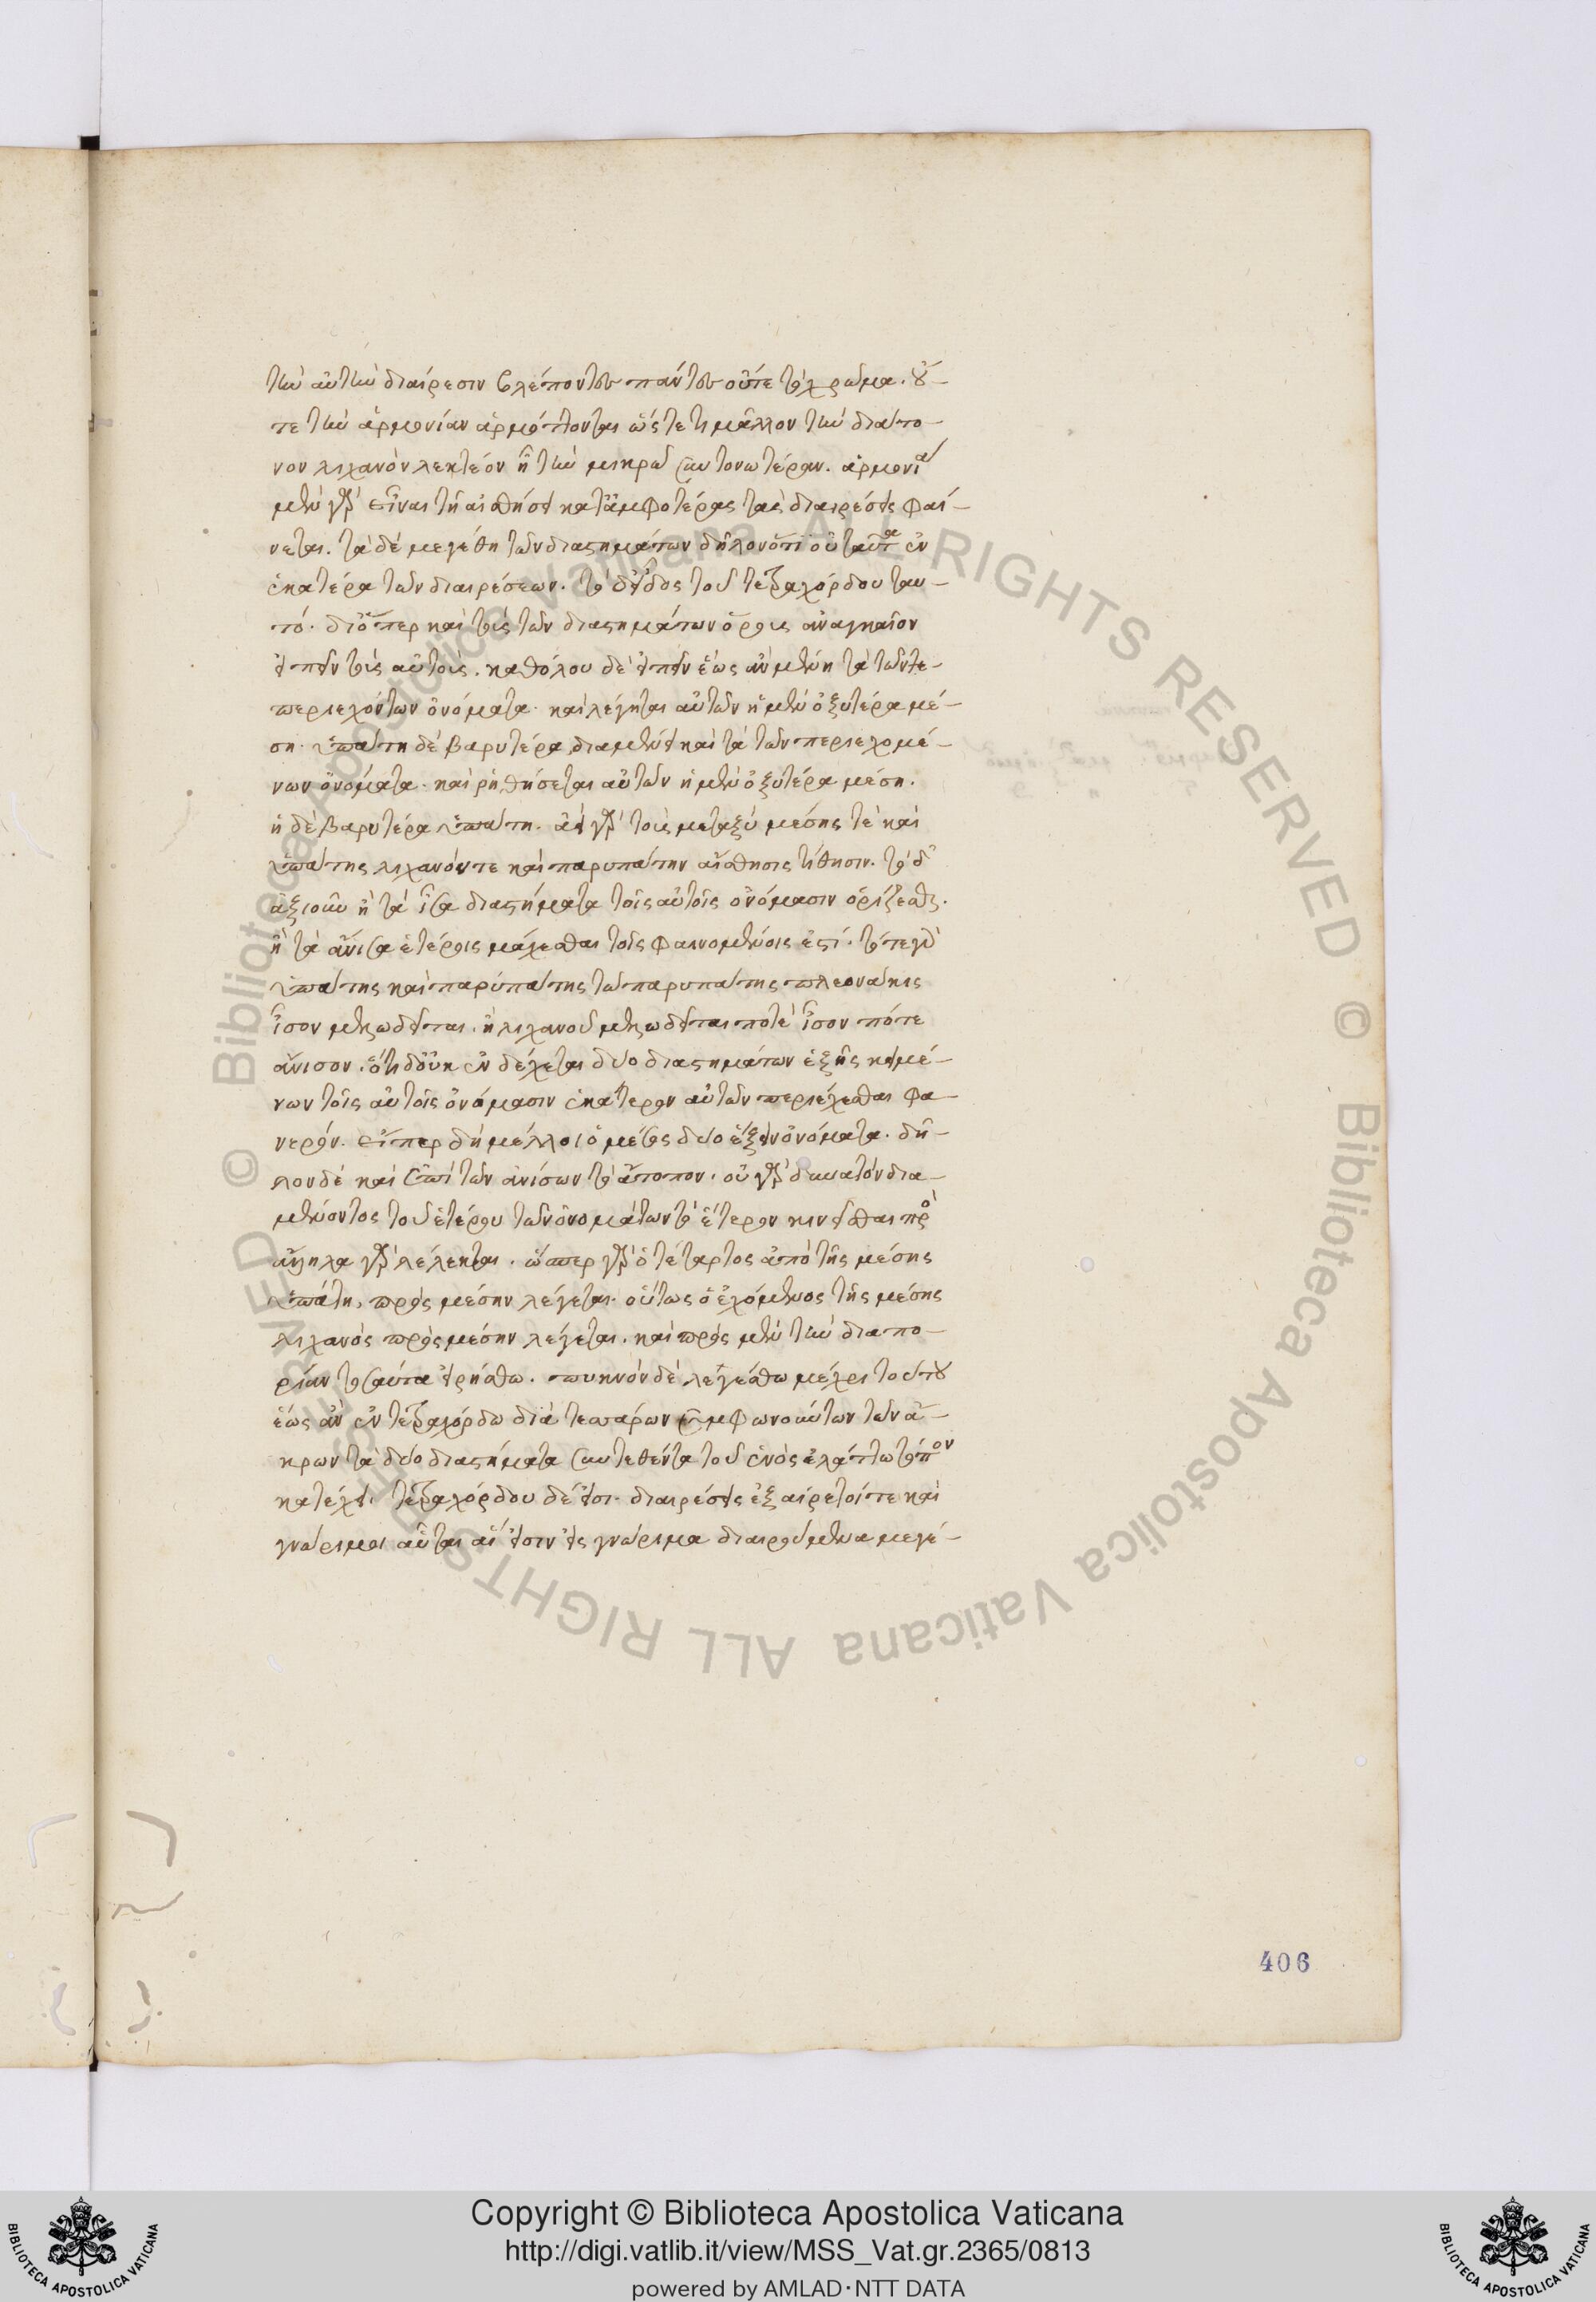 τὴν αὐτὴν διαίρεσιν βλέποντες πάντες οὔτε τὸ χρῶμα. οὔ-
τε τὴν ἁρμονίαν ἁρμόττονται ὥς τε τί μᾶλλον τὴν διάτο-
νον λιχανὸν λεκτέον ἢ τὴν μικρῷ συντονωτέραν. ἁρμονία
μὲν γὰρ εἶναι τῇ αἰσθήσει κατ' ἀμφοτέρας τὰς διαιρέσεις φαί-
νεται. τὰ δὲ μεγέθη τῶν διαστημάτων δηλονότι οὐ ταυτὰ ἐν
ἑκατέρα τῶν διαιρέσεων. τὸ δ' εἶδος τοῦ τετραχόρδου ταυ-
τό. διόπερ καὶ τοὺς τῶν διαστημάτων ὅρους ἀναγκαῖον
εἰπεῖν τοὺς αὐτοὺς. καθόλου δὲ εἰπεῖν ἕως ἂν μένη τὰ τῶν τε-
περιεχόντων ὀνόματα. καὶ λέγηται αὐτῶν ἡ μὲν ὀξυτέρα μέ-
ση. ὑπάτη δὲ βαρυτέρα διαμένει καὶ τὰ τῶν περιεχομέ-
νων ὀνόματα. καὶ ῥηθήσεται αὐτῶν ἡ μὲν ὀξυτέρα μέση.
ἡ δὲ βαρυτέρα ὑπάτη. ἀεὶ γὰρ τοὺς μεταξὺ μέσης τὲ καὶ
ὑπάτης λιχανόν τε καὶ παρυπάτην αἴσθησις τίθησιν. τὸ δ'
ἀξιοῦν ἢ τὰ ἴσα διαστήματα τοῖς αὐτοῖς ὀνόμασιν ὁρίζεσθαι.
ἢ τὰ ἄνισα ἑτέροις μάχεσθαι τοῖς φαινομένοις ἐστί. τό τε γὰρ
ὑπάτης καὶ παρυπάτης τῶ παρυπάτης πλεονάκις
ἴσον μελωδεῖται. ἢ λιχανοῦ μελωδεῖται ποτὲ ἴσον πότε
ἄνισον. ὅτι δ' οὐκ ἐν δέχεται δύο διαστημάτων ἑξῆς κειμέ-
νων τοῖς αὐτοῖς ὀνόμασιν ἑκάτερον αὐτῶν περιέχεσθαι φα-
νερόν. εἴπερ δὴ μέλλοι ὁ μέσος δύο ἕξειν ὀνόματα. δῆ-
λον δὲ καὶ ἐπὶ τῶν ἀνίσων τὸ ἄτοπον. οὐ γὰρ δυνατὸν δια-
μένοντος τοῦ ἑτέρου τῶν ὀνομάτων τὸ ἕτερον κινεῖσθαι πρὸς
ἄλληλα γὰρ λέλεκται. ὥσπερ γὰρ ὁ τέταρτος ἀπὸ τῆς μέσης
ὑπάτη, πρὸς μέσην λέγεται. οὕτως ὁ ἐχόμενος τῆς μέσης
λιχανὸς πρὸς μέσην λέγεται. καὶ πρὸς μὲν τὴν διαπο-
ρίαν τοσαῦτα εἰρήσθω. πυκνὸν δὲ λεγέσθω μέχρι τούτου
ἕως ἂν ἐν τετραχόρδω διὰ τεσσάρων συμφωνούντων τῶν ἄ-
κρων τὰ δύο διαστήματα συντεθέντα τοῦ ἑνὸς ἐλάττω τόπον
κατέχει. τετραχόρδου δέ εἰσι διαιρέσεις ἐξαίρετοί τε καὶ
γνώριμοι αὗται αἵ εἰσιν εἰς γνώριμα διαιρούμενα μεγέ-
406
Copyright © Biblioteca Apostolica Vaticana
http://digi.vatlib.it/view/MSS_Vat.gr.2365/0813
powered by AMLAD·NTT DATA